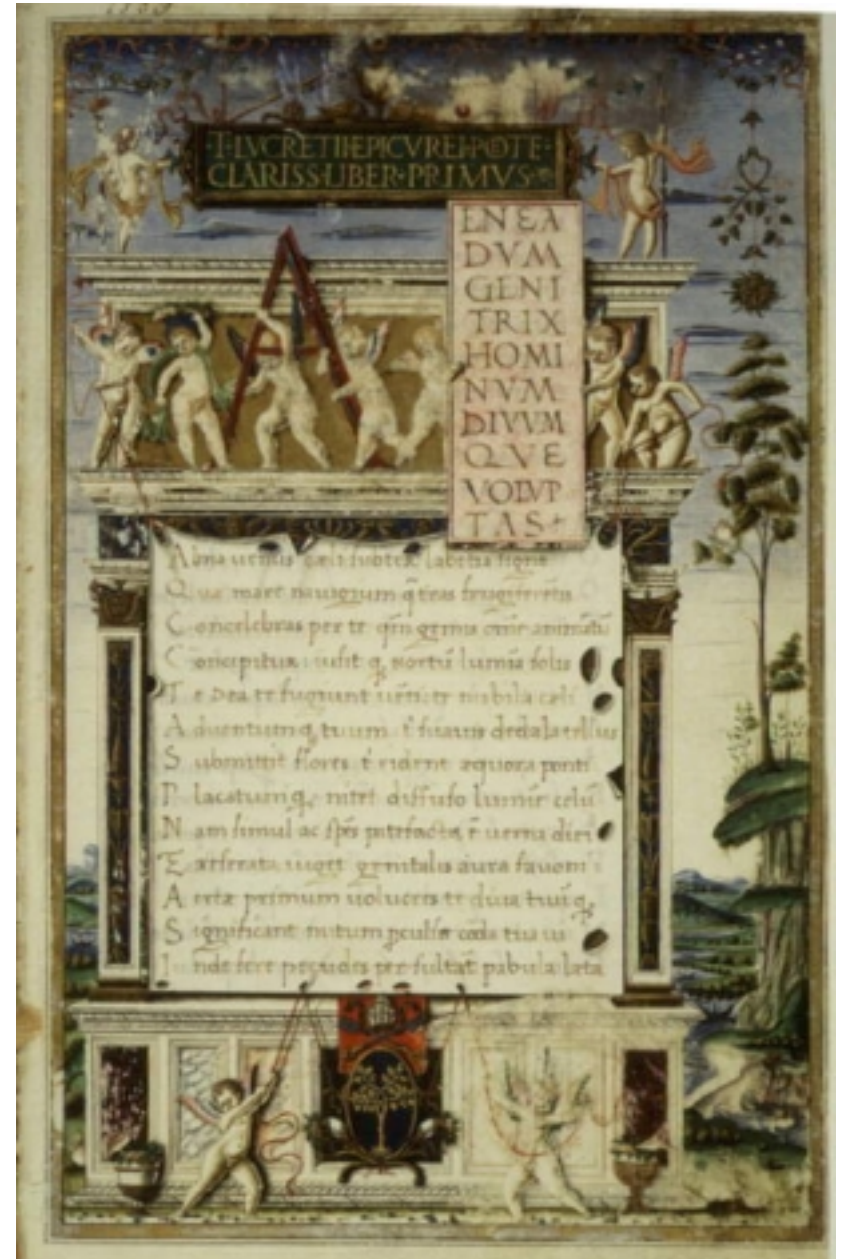 ·T·LVCRETII·EPICVREI·POETE·
CLARISS·LIBER·PRIMVS·
A
ENEA
DVM
GENI
TRIX
HOMI
NVM
DIVVM
QVE
VOLVP
TAS
Alma uenus cæli subter labentia signa
Quæ mare nauigerum q̃ terras frugiferentis
Concelebras per te qm̃ genus omne animantũ
Concipitur uisit q; exortũ lumina solis
Te Dea te fugiunt uẽti te nubila cæli
Aduentumq; tuum tibi suauis dedala tellus
Submittit flores tibi rident æquora ponti
Placatumq; nitet diffuso lumine celũ
Nam simul ac spẽs patefacta ẽ uerna diei
Et reserata uiget genitalis aura fauoni
Aeriæ primum uolucres te diua tuũq;
Significant initum perculsæ corda tua ui
Inde feræ pecudes per sultãt pabula læta